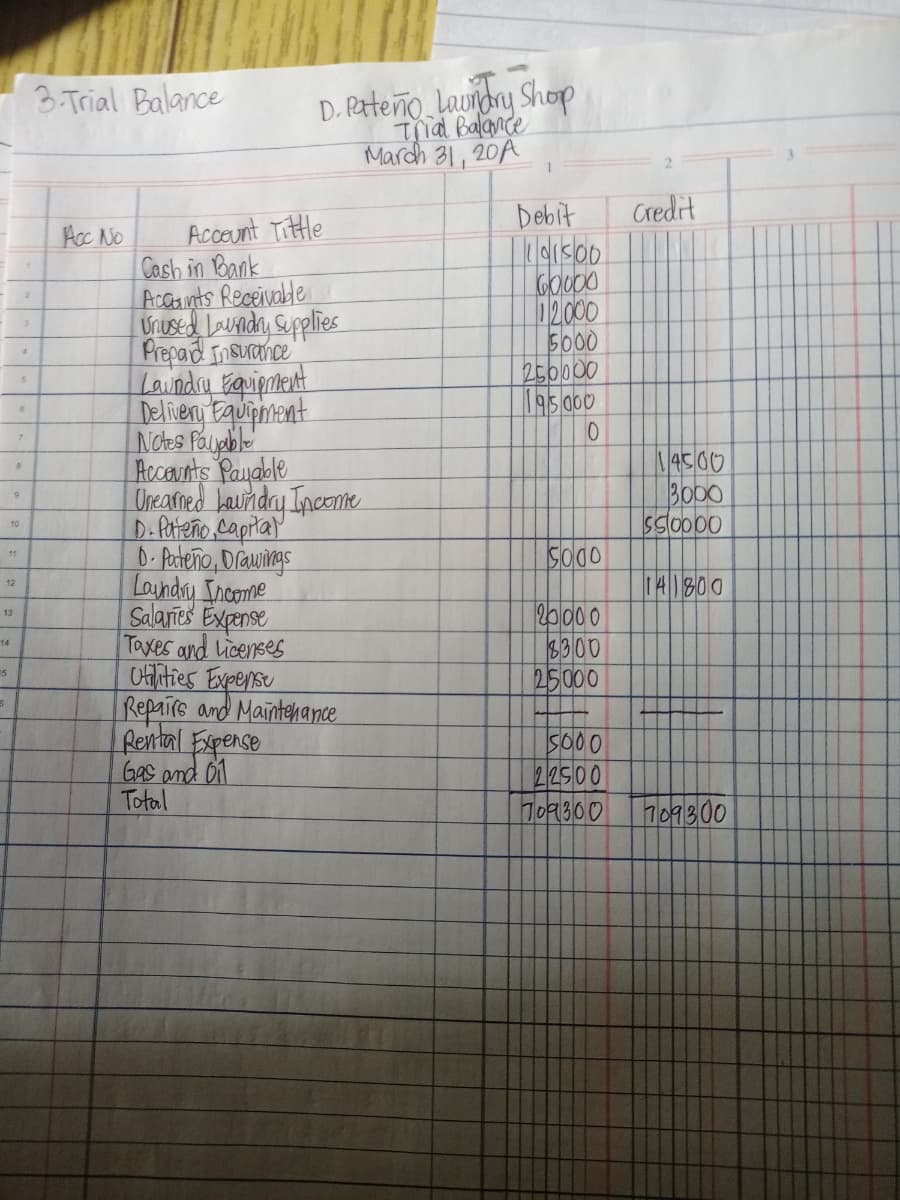 3. Trial Balance
D. Pateño Laundry Shop
Trial Balance
March 31, 20A
1 2 3
Acc No Account Tittle Debit Credit
1 Cash in Bank 101500
2 Accounts Receivable 60000
3 Unused Laundry Supplies 12000
4 Prepaid Insurance 5000
5 Laundry Equipment 250000
6 Delivery Equipment 195000
7 Notes Payable 0
8 Accounts Payable 14500
9 Unearned Laundry Income 3000
10 D. Pateño, Capital 550000
11 D. Pateño, Drawings 5000
12 Laundry Income 141800
13 Salaries Expense 20000
14 Taxes and Licenses 8300
15 Utilities Expense 25000
Repairs and Maintenance — —
Rental Expense 5000
Gas and Oil 22500
Total 709300 709300